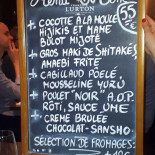 LURTON
55
+ COCOTTE À LA MOULE
HIJIKIS ET MAME
BULOT MIJOTÉ
+ GROS MAKI DE SHITAKÉS
AMAEBI FRITE
+ CABILLAUD POÊLÉ,
MOUSSELINE YUZU
+ POULET "NOIR" A.O.P.
RÔTI, SAUCE UME
+ CRÈME BRULÉE
CHOCOLAT-SANSHO
SÉLECTION DE FROMAGES: